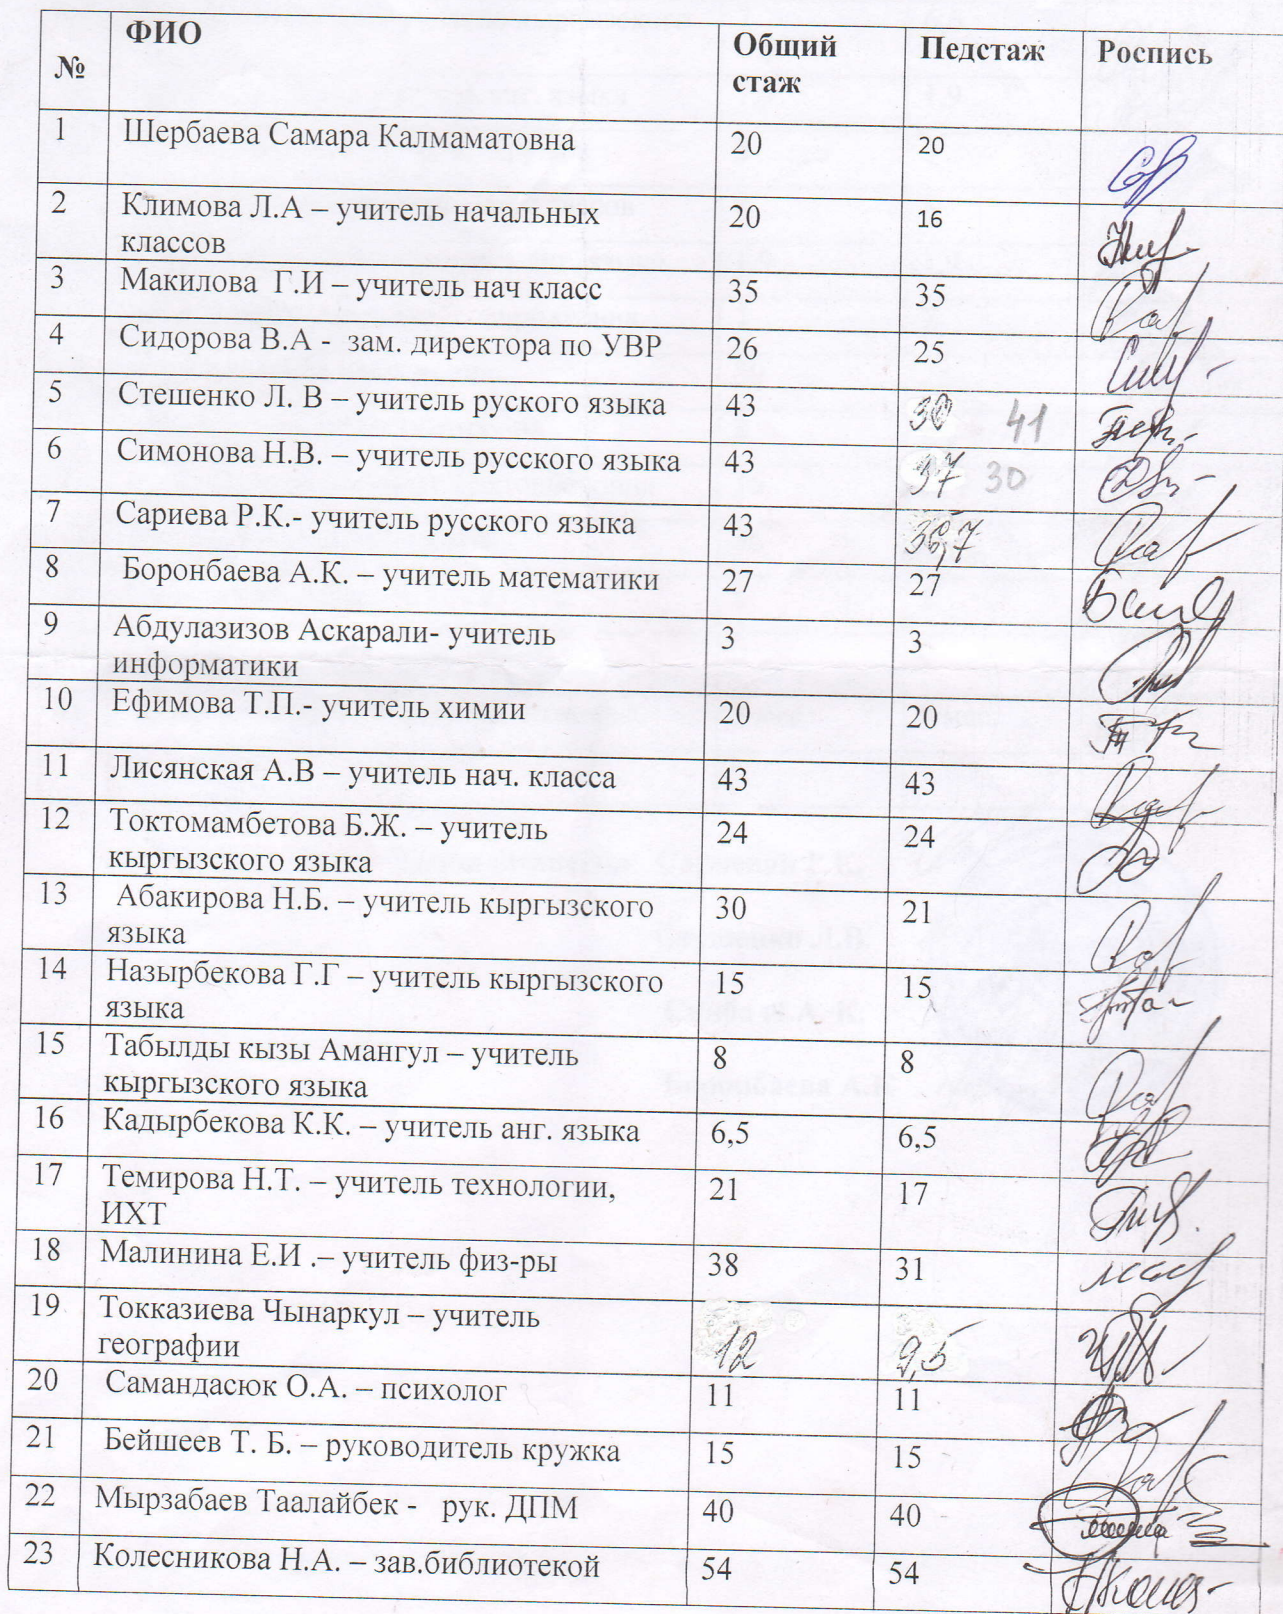 № ФИО Общий стаж Педстаж Роспись
1 Шербаева Самара Калмаматовна 20 20
2 Климова Л.А – учитель начальных
классов 20 16
3 Макилова Г.И – учитель нач класс 35 35
4 Сидорова В.А - зам. директора по УВР 26 25
5 Стешенко Л. В – учитель руского языка 43 41
6 Симонова Н.В. – учитель русского языка 43 37 30
7 Сариева Р.К.- учитель русского языка 43
8 Боронбаева А.К. – учитель математики 27 27
9 Абдулазизов Аскарали- учитель
информатики 3 3
10 Ефимова Т.П.- учитель химии 20 20
11 Лисянская А.В – учитель нач. класса 43 43
12 Токтомамбетова Б.Ж. – учитель
кыргызского языка 24 24
13 Абакирова Н.Б. – учитель кыргызского
языка 30 21
14 Назырбекова Г.Г – учитель кыргызского
языка 15 15
15 Табылды кызы Амангул – учитель
кыргызского языка 8 8
16 Кадырбекова К.К. – учитель анг. языка 6,5 6,5
17 Темирова Н.Т. – учитель технологии,
ИХТ 21 17
18 Малинина Е.И .– учитель физ-ры 38 31
19 Токказиева Чынаркул – учитель
географии 12 9,5
20 Самандасюк О.А. – психолог 11 11
21 Бейшеев Т. Б. – руководитель кружка 15 15
22 Мырзабаев Таалайбек - рук. ДПМ 40 40
23 Колесникова Н.А. – зав.библиотекой 54 54